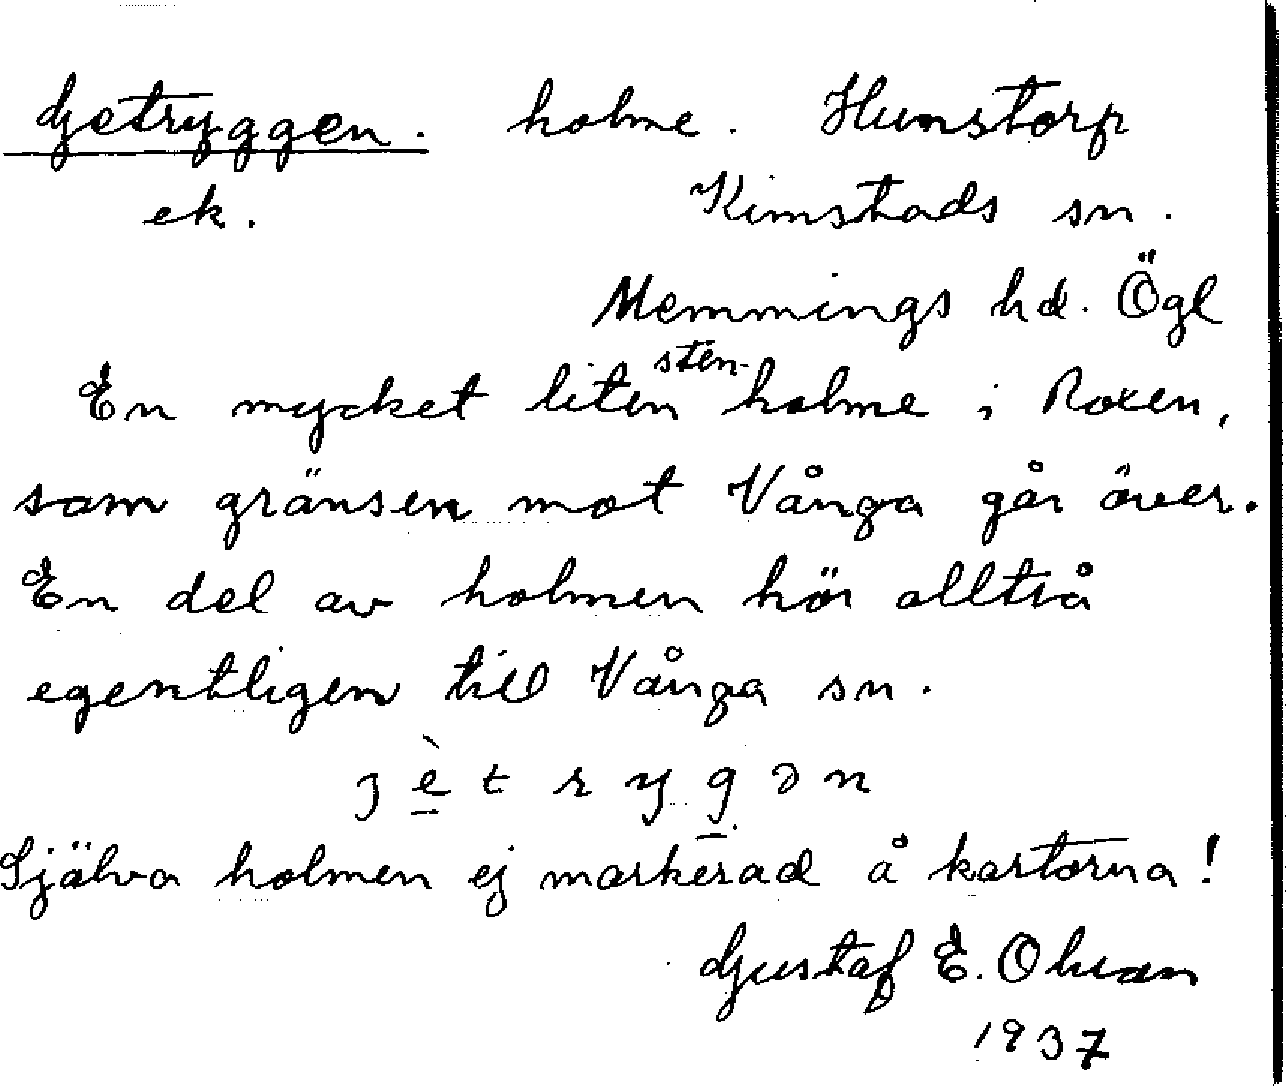 Getryggen. holme. Humstorp
ek. Kimstads sn.
Memmings hd. Ögl
En mycket liten sten-holme i Roxen,
som gränsen mot Vånga går över.
En del av holmen hör alltså
egentligen till Vånga sn.
j è t r y g ə n
Själva holmen ej markerad å kartorna!
Gustaf E. Ohman
1937